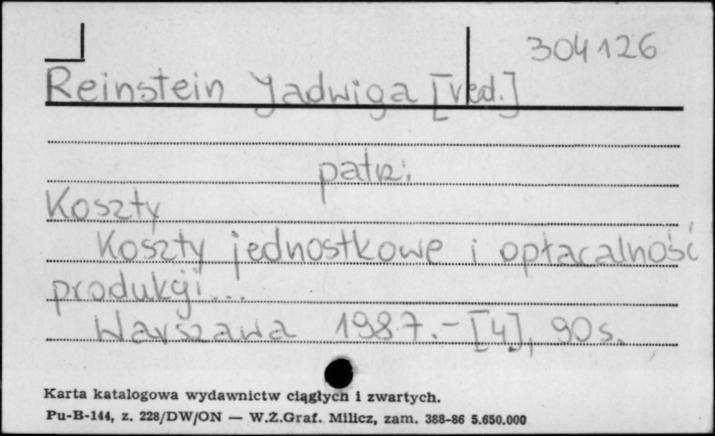 304126
Reinstein Jadwiga [red.]
patrz:
Koszty
Koszty jednostkowe i opłacalność
produkcji...
Warszawa 1987.- [4], 90 s.
Karta katalogowa wydawnictw ciągłych i zwartych.
Pu-B-144, z. 228/DW/ON — W.Z.Graf. Milicz, zam. 388-86 5.650.000